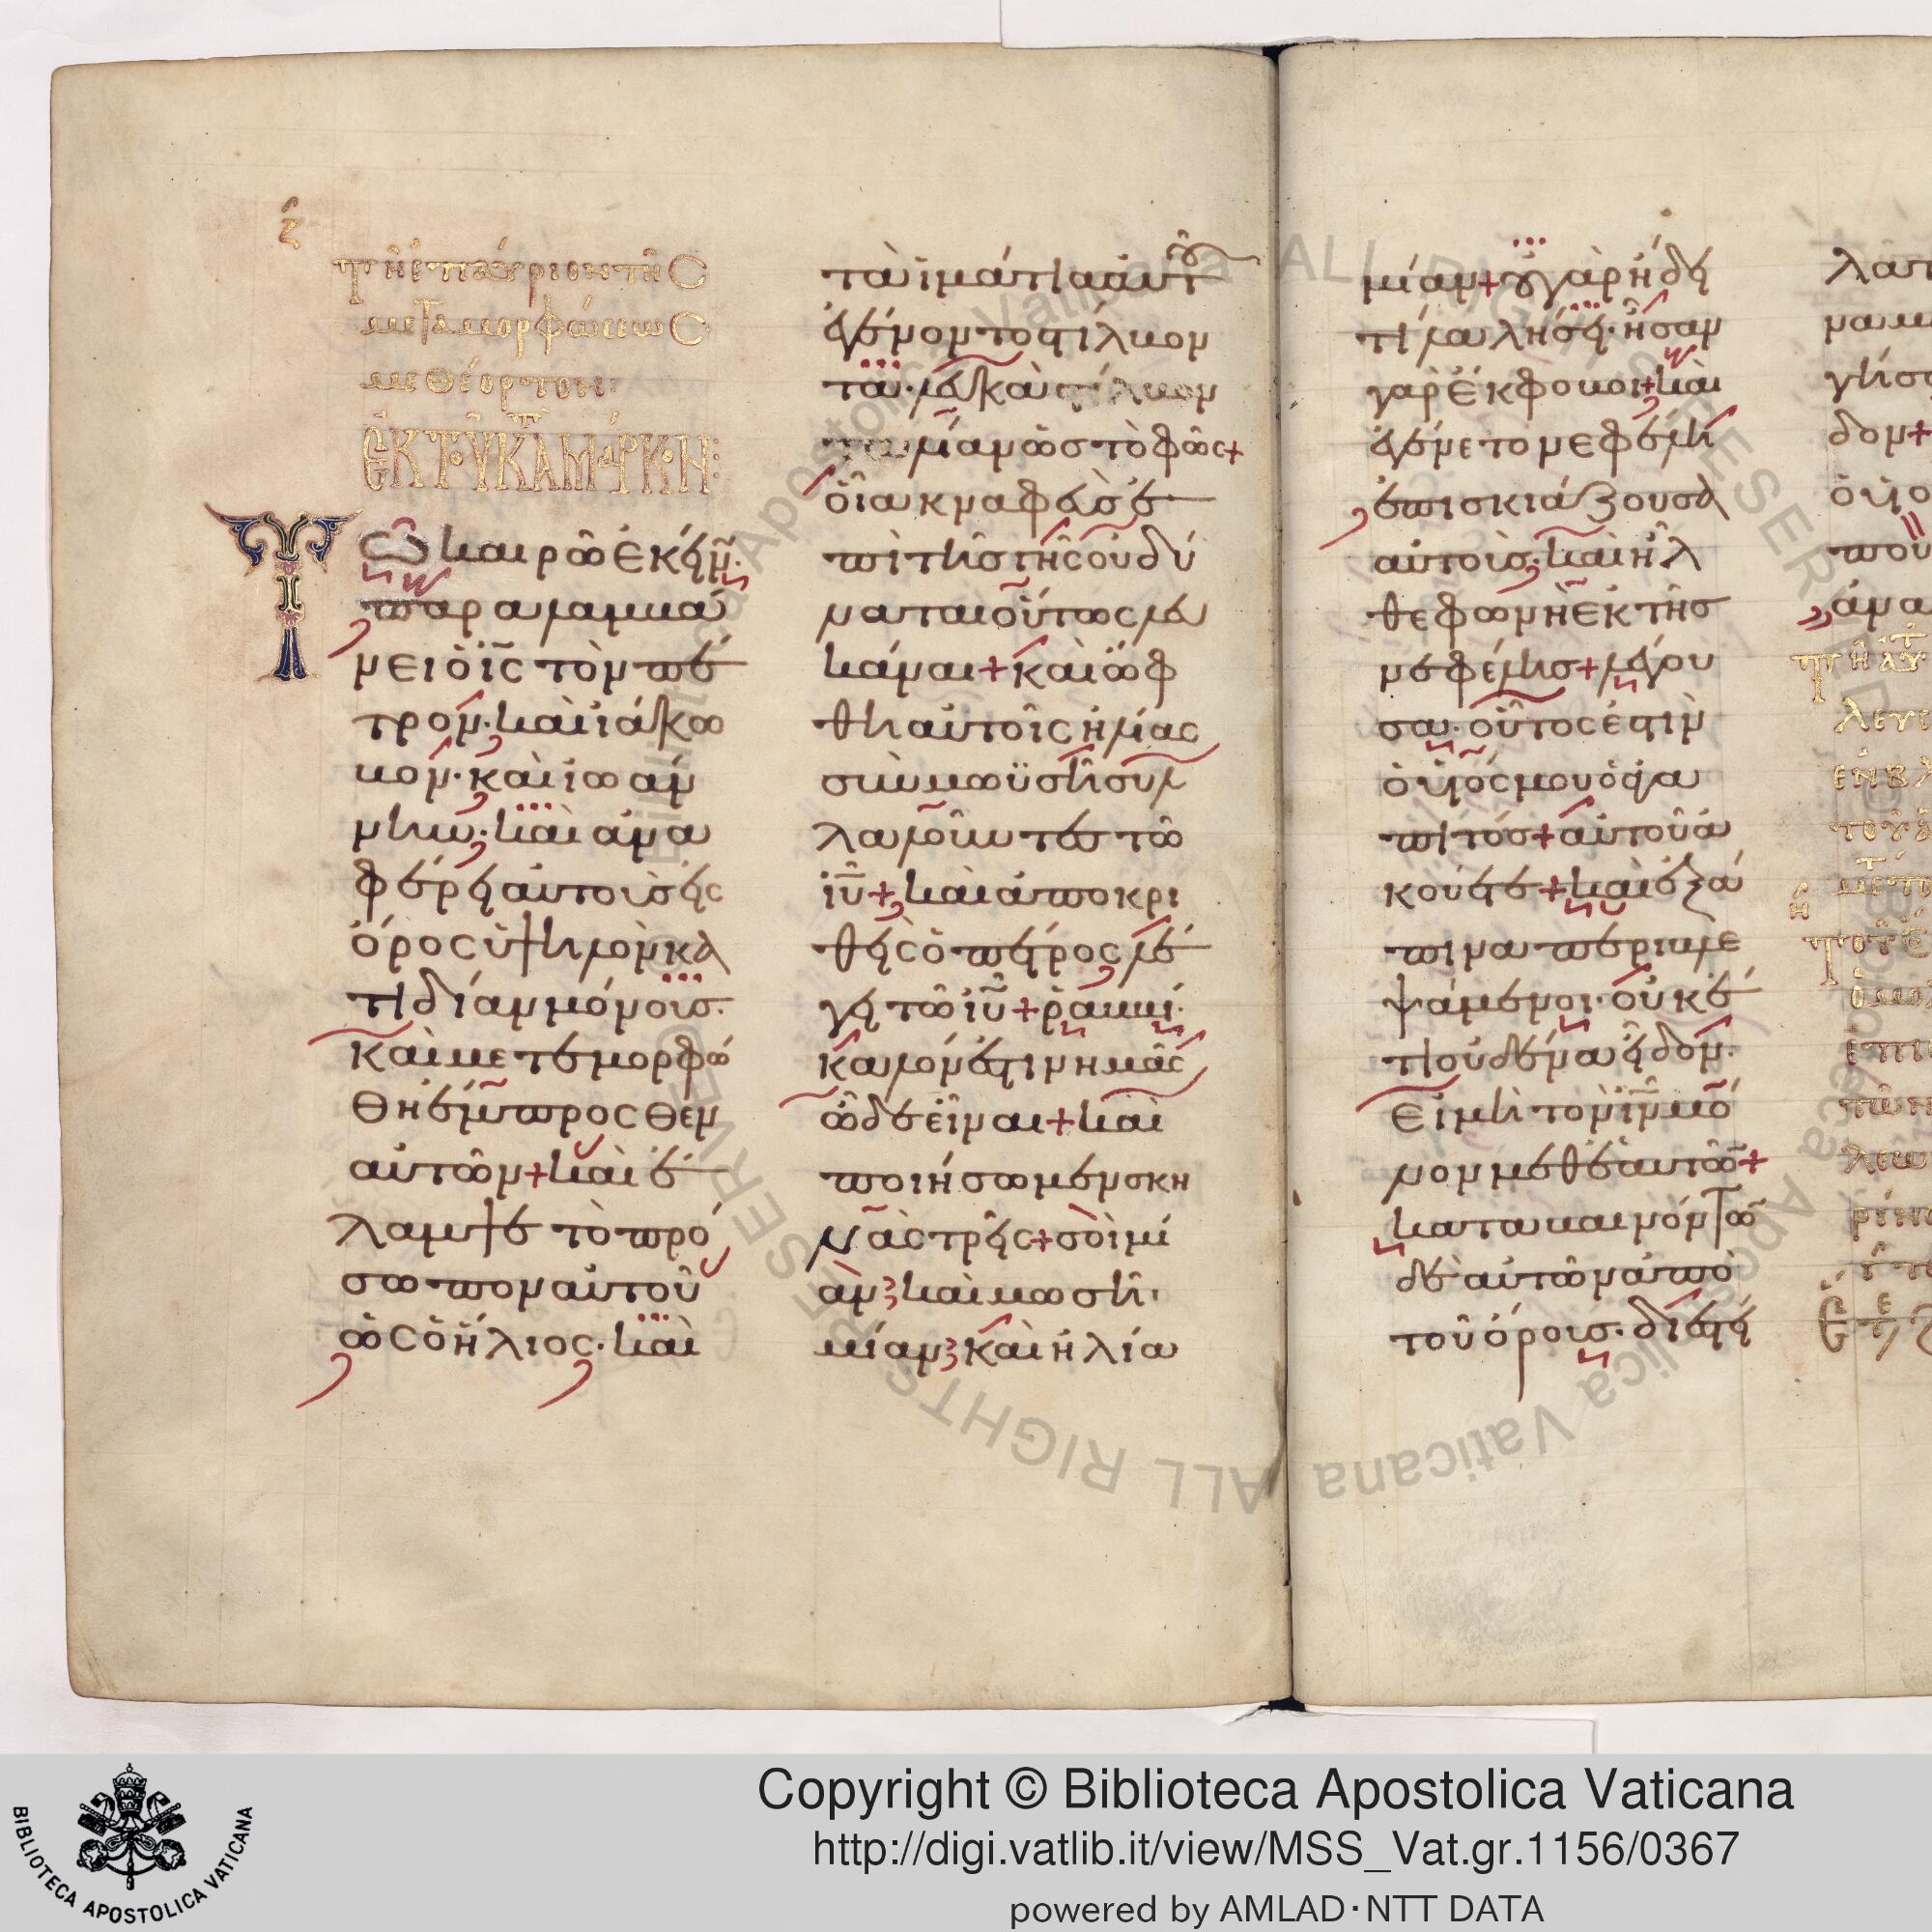 ζ
τῇ ἐπαύριον τῆς
μεταμορφώσεως
μεθέορτον:
ἐκ τοῦ κατὰ Μάρκον:
Τῶ καιρῶ ἐκείν
παραλαμβά
νει ὁ ις τὸν πέ
τρον· καὶ ϊάκω
βον· καὶ ϊωάν
νην· καὶ ἀνα
φέρει αὐτοὺς εἰς
ὄρος ὑψηλὸν κα
τιδίαν μόνους·
καὶ μετεμορφώ
θη ἔμπροσθεν
αὐτῶν+ καὶ ἔ
λαμψε τὸ πρό
σωπον αὐτοῦ
ὡς ὁ ἥλιος· καὶ
τὰ ἱμάτια αὐτοῦ
ἐγένοντο στίλβον
τα· λευκὰ
λίαν ὡς τὸ φῶς+
οἷα κναφεὺς ἐ
πὶ τῆς γῆς οὐ δύ
ναται οὕτως λευ
κάναι+ καὶ ὤφ
θη αὐτοῖς ἡλίας
σὺν μωϋσῆ συλ
λαλοῦντες τῶ
ιυ+ καὶ ἀποκρι
θεὶς ὁ πέτρος λέ
γει τῶ ιυ+ ῥαββί·
καλόν ἐστιν ἡμᾶς
ὧδε εἶναι+ καὶ
ποιήσωμεν σκη
νὰς τρεῖς+ σοὶ μί
αν, καὶ μωσῆ·
μίαν, καὶ ἡλία
μίαν+ οὐ γὰρ ἤδει
τί λαλήσει· ἦσαν
γὰρ ἔκφοβοι+ καὶ
ἐγένετο νεφέλη
ἐπισκιάζουσα
αὐτοῖς· καὶ ἦλ
θε φωνὴ ἐκ τῆς
νεφέλης+ λέγου
σα· οὗτος ἐστιν
ὁ υἱός μου ὁ ἀγα
πητός+ αὐτοῦ ἀ
κούετε+ καὶ ἐξά
πινα περιβλε
ψάμενοι· οὐκέ
τι οὐδένα εἶδον·
εἰ μὴ τὸν ιν μό
νον μεθ' ἑαυτῶν+
καταβαινόντων
δὲ αὐτῶν ἀπὸ
τοῦ ὄρους· διεστεί
Copyright © Biblioteca Apostolica Vaticana
http://digi.vatlib.it/view/MSS_Vat.gr.1156/0367
powered by AMLAD·NTT DATA
BIBLIOTECA APOSTOLICA VATICANA